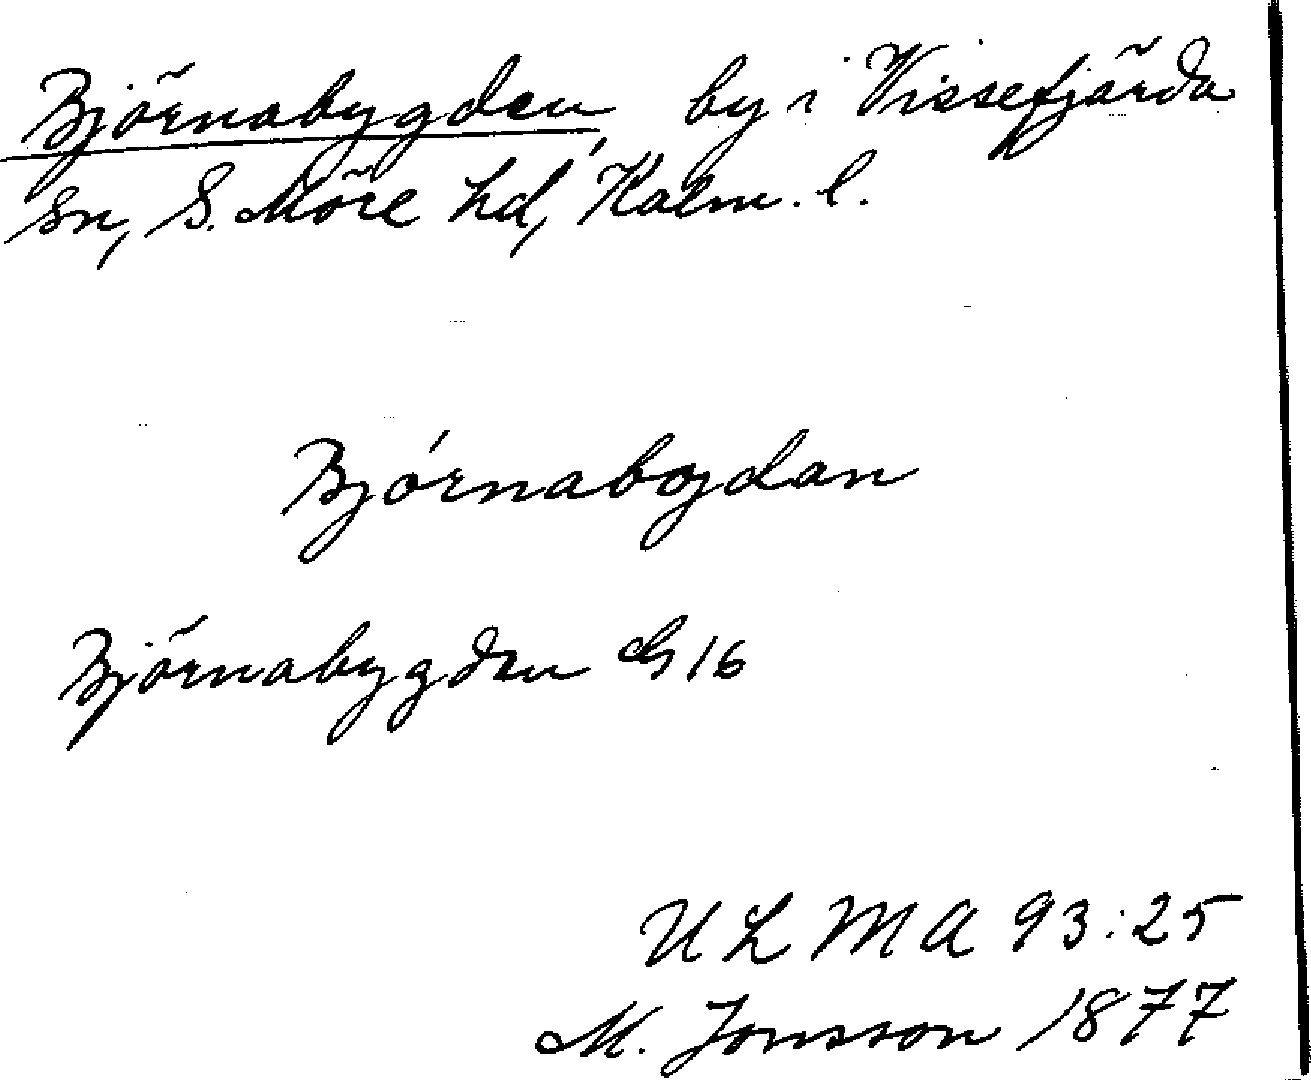 Björnabygden, by i Vissefjärda
sn, S. Möre hd, Kalm. l.
Bjórnabojdan
Björnabygden G 16
ULMA 93:25
M. Jonsson 1877